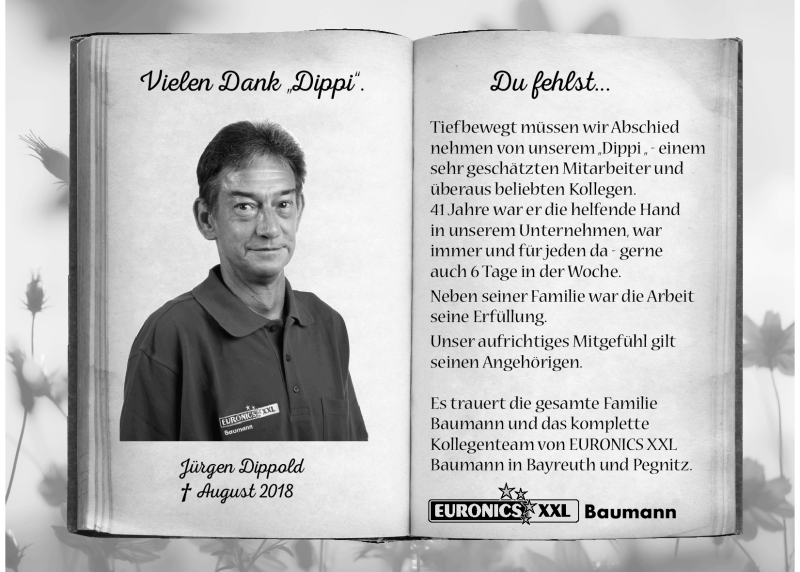 Vielen Dank „Dippi“.
EURONICS XXL
Baumann
Jürgen Dippold
† August 2018
Du fehlst...
Tiefbewegt müssen wir Abschied
nehmen von unserem „Dippi „ - einem
sehr geschätzten Mitarbeiter und
überaus beliebten Kollegen.
41 Jahre war er die helfende Hand
in unserem Unternehmen, war
immer und für jeden da - gerne
auch 6 Tage in der Woche.
Neben seiner Familie war die Arbeit
seine Erfüllung.
Unser aufrichtiges Mitgefühl gilt
seinen Angehörigen.
Es trauert die gesamte Familie
Baumann und das komplette
Kollegenteam von EURONICS XXL
Baumann in Bayreuth und Pegnitz.
EURONICS XXL Baumann